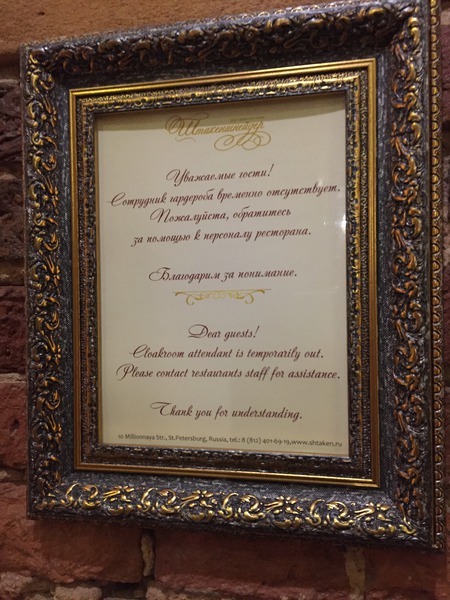 Штакеншнейдер
Уважаемые гости!
Сотрудник гардероба временно отсутствует.
Пожалуйста, обратитесь
за помощью к персоналу ресторана.
Благодарим за понимание.
Dear guests!
Cloakroom attendant is temporarily out.
Please contact restaurants staff for assistance.
Thank you for understanding.
10 Millionnaya Str., St.Petersburg, Russia, tel.: 8 (812) 401-69-19,www.shtaken.ru